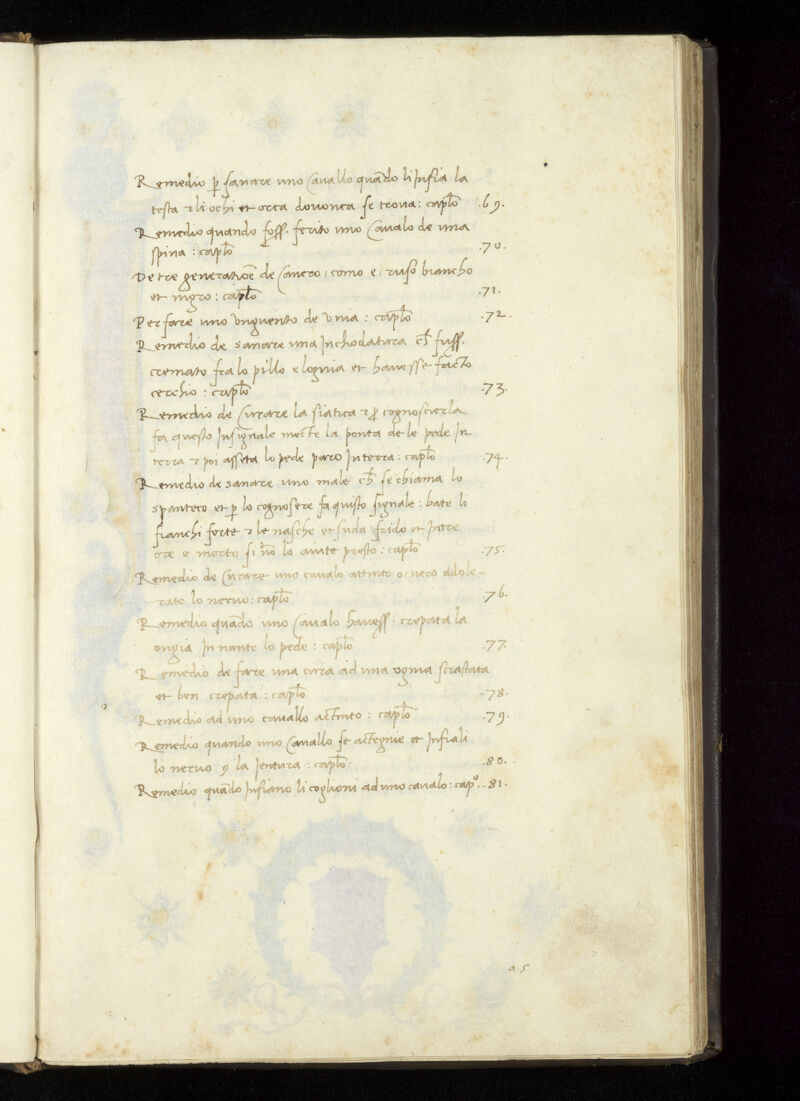 Remedio p̱ sanare uno Cavallo quãdo li Infia la
testa et li ochi et orca dovonca se trova: capl̃o .69.
Remedio quando foss. ferito uno Cavalo de una
spina: capl̃o .70.
De tre generatioẽ de Cancro, como e, ruso biancho
et nigro: capl̃o .71.
Per fare uno unguento de unia: capl̃o .72.
Remedio de sanare una Inchiodatura ch̃ fuss.
cremato fra lo pillo e lognia et havesse facto
cerchio: capl̃o .73.
Remedio de Curare la siatica et p̱ cognoscierla
fa questo Insignale mecte la ponta de le pede In
terra et poi asseta lo pede paro In terra: capl̃o .74.
Remedio de sanare uno male ch̃ se chiama lo
spanteco et p̱ lo cognosere fa quisto signale: bate li
fianchi forte et le nasche et suda frido et Intre
ore e morto si nõ lo aiute presto: capl̃o .75.
Remedio de Curare uno cavalo attinto o, vero adole-
rato lo nervo: capl̃o .76.
Remedio quãdo uno Cavalo havess. crepata la
ongia In nante lo pede: capl̃o .77.
Remedio de fare una cura ad una ognia scrastata
et ben crepata: capl̃o .78.
Remedio ad uno cavallo actinto: capl̃o .79.
Remedio quando uno Cavallo se actegnie et Infiali
lo nervo et la Jentura: capl̃o: .80.
Remedio quãdo Infiano li coglioni ad uno cavalo: capº. .81.
a 5